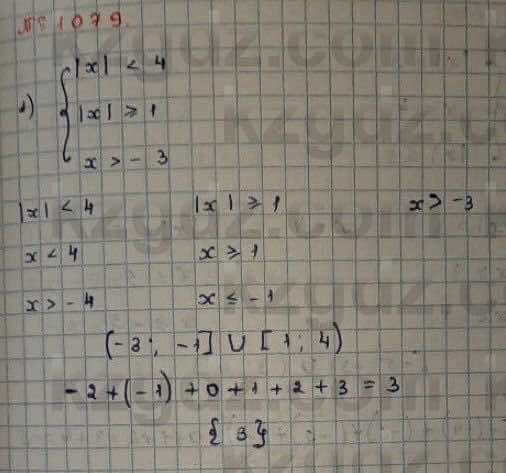 № 1079.
1) { |x| < 4
|x| ⩾ 1
x > - 3
|x| < 4 |x| ⩾ 1 x > -3
x < 4 x ⩾ 1
x > - 4 x ⩽ - 1
(-3; -1] ∪ [1; 4)
- 2 + (-1) + 0 + 1 + 2 + 3 = 3
{3}
kzgdz.com